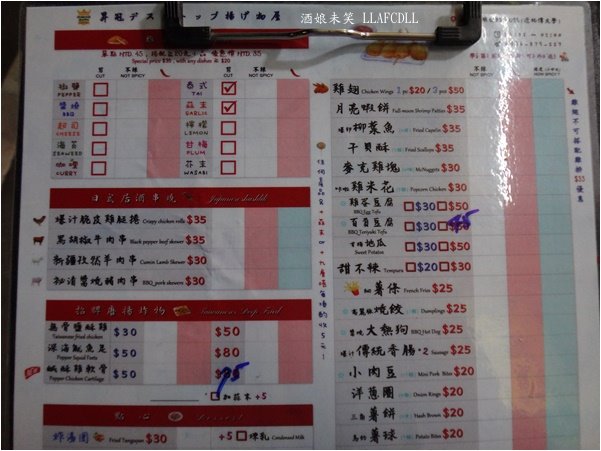 酒娘未笑 LLAFCDLL
昇冠デストップ揚げ物屋
單點NTD.45, 搭配上20元小品 優惠價NTD.35
Special price $35, with any dishes & $20
切 CUT
不辣 NOT SPICY
切 CUT
不辣 NOT SPICY
椒鹽 PEPPER
泰式 TAI
醬燒 BBQ
蒜末 GARLIC
起司 CHEESE
檸檬 LEMON
海苔 SEAWEED
甘梅 PLUM
咖哩 CURRY
芥末 WASABI
日式居酒串燒 Japanese shashlik
爆汁脆皮雞腿捲 Crispy chicken rolls $35
黑胡椒牛肉串 Black pepper beef skewer $35
新疆孜然羊肉串 Cumin Lamb Skewer $30
秘清醬燒豬肉串 BBQ pork skewers $30
招牌唐揚炸物 Taiwanese Deep Fried
無骨鹽酥雞 Taiwanese fried chicken $30 $50
深海魷魚足 Pepper Squid Feets $80
鹹酥雞軟骨 Pepper Chicken Cartilage 75
加蒜末+5
點心 Dessert
炸湯圓 Fried Tangyuan $30 +5 煉乳 Condensed Milk
不辣 NOT SPICY
雞翅 Chicken Wings 1pc$20 / 3pcs $50
月亮蝦餅 Full-moon Shrimp Patties $35
爆卵柳葉魚 Fried Capelin $35
干貝酥 Fried Scallops $35
麥克雞塊 McNuggets $30
雞米花 Popcorn Chicken $30
雞蛋豆腐 BBQ Egg Tofu $30 $50
百頁豆腐 BBQ Teriyaki Tofu $30 45
甘梅地瓜 Sweet Potatoes $30 $50
甜不辣 Tempura $20 $30
薯條 French Fries $25
燒餃 Dumplings $25
大熱狗 BBQ Hot Dog $25
爆汁傳統香腸·2 Sausage $25
小肉豆 Mini Pork Bites $20
洋蔥圈 Onion Rings $20
三角薯餅 Hash Brown $20
薯球 Potato Bites $20
雞翅不可搭配雞排$35優惠